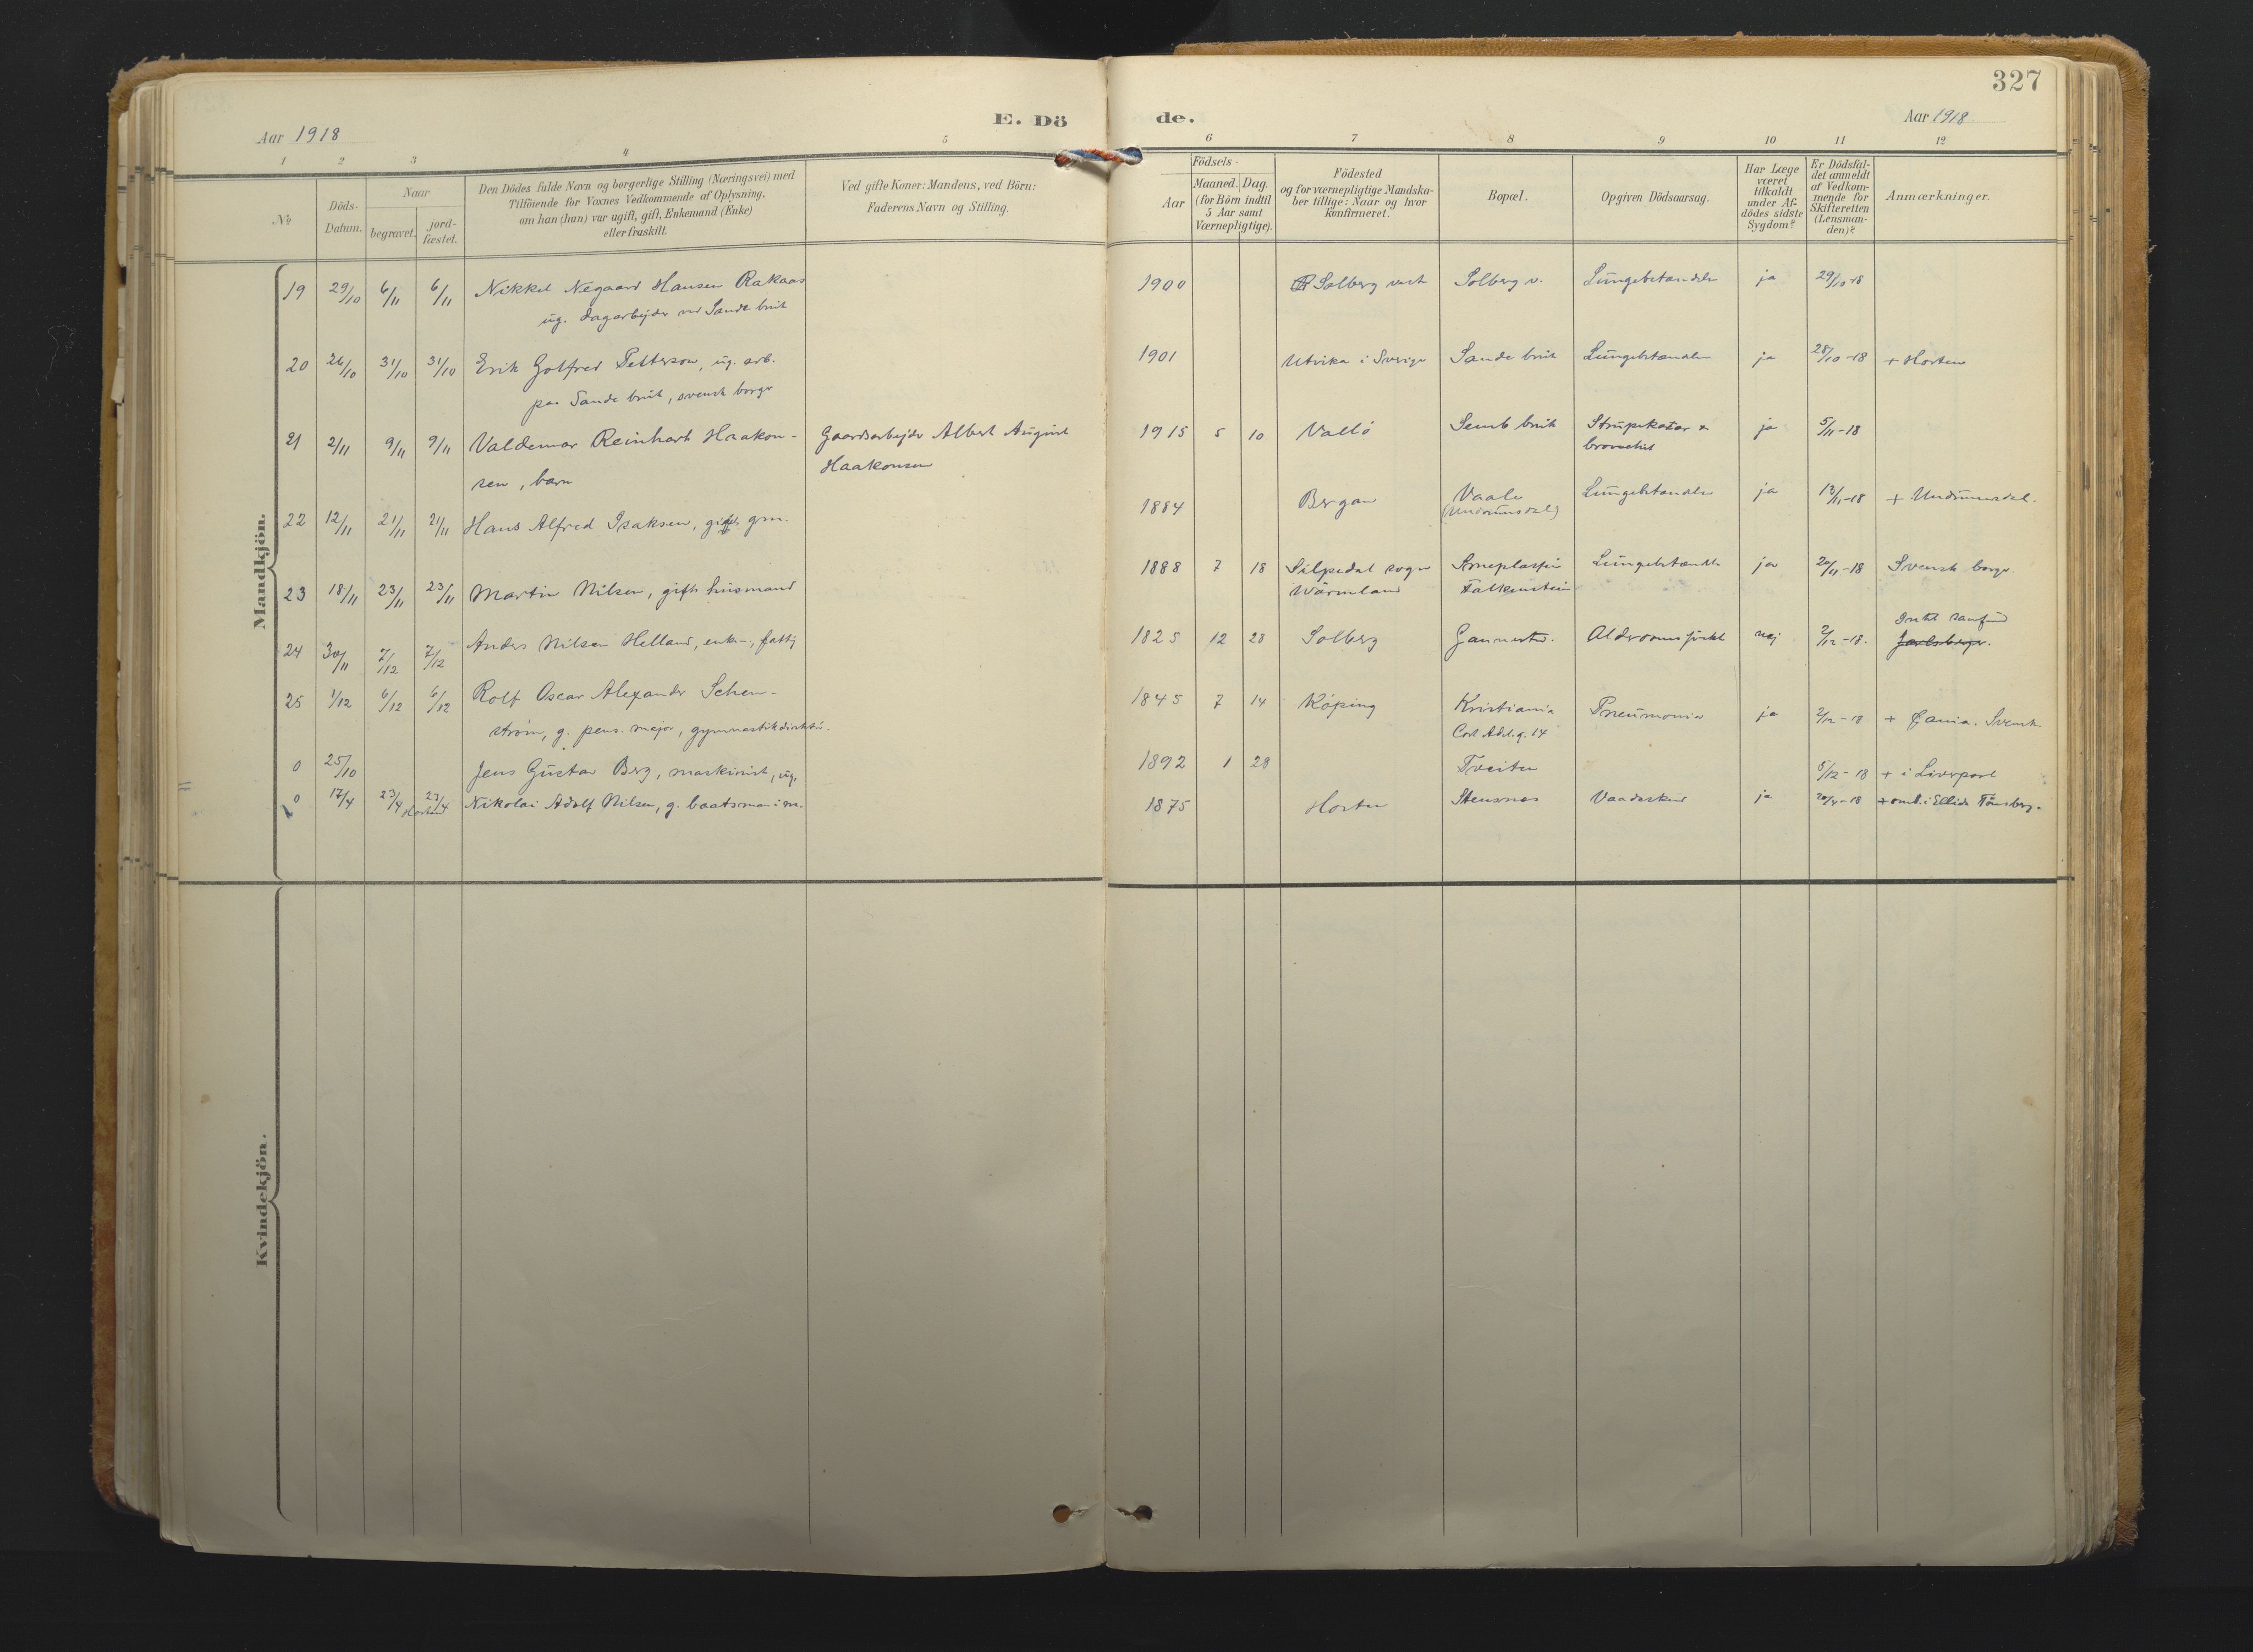 327
E. Dö de.
Aar 1918
Aar 1918
1 2 3 4 5 6 7 8 9 10 11 12
No
Döds-Datum.
Naar
begravet.
jord-fæstet.
Den Dödes fulde Navn og borgerlige Stilling (Næringsvei) med
Tilföiende for Voxnes Vedkommende af Oplysning,
om han (hun) var ugift, gift, Enkemand (Enke)
eller fraskilt.
Ved gifte Koner: Mandens, ved Börn:
Faderens Navn og Stilling.
Födsels-
Aar
Maaned. Dag.
(for Börn indtil
5 Aar samt
Værnepligtige).
Födested
og for værnepligtige Mandska-
ber tillige: Naar og hvor
konfirmeret.
Bopæl.
Opgiven Dödsaarsag.
Har Læge
været
tilkaldt
under Af-
dödes sidste
Sygdom?
Er Dödsfal-
det anmeldt
af Vedkom-
mende for
Skifteretten
(Lensman-
den)?
Anmærkninger.
Mandkjön.
19 29/10 6/11 6/11 Nikkel Negaard Hansen Rakaas 1900 Solberg vest Solberg v. Lungebetændelse ja 29/10-18
ug. dagarbejder ved Sande bruk
20 26/10 31/10 31/10 Erik Gotfred Petterson, ug. arb. 1901 Utvika i Sverige Sande bruk Lungebetændelse ja 28/10-18 + Horten
paa Sande bruk, svensk borger
21 2/11 9/11 9/11 Valdemar Reinhart Haakon- Gaardsarbejder Albert August 1915 5 10 Vallö Semb bruk Strupekatar & ja 5/11-18
sen, barn Haakonsen bronchit
22 12/11 21/11 21/11 Hans Alfred Isaksen, gift gm. 1884 Bergan Vaale Lungebetændelse ja 13/11-18 + Undrumsdal.
(Undrumsdal)
23 18/11 23/11 23/11 Martin Nilsen, gift husmand 1888 7 18 Silpedal sogn Lungebetændelse ja 20/11-18 Svensk borger.
Wärmland Falkenstein
24 30/11 7/12 7/12 Anders Nilsen Helland, enkem., fattig 1825 12 28 Solberg Gannestad. Alderdomssvækkelse nej 2/12-18. Jarlsberg.
25 1/12 6/12 6/12 Rolf Oscar Alexander Schen- 1845 7 14 Köping Kristiania Pneumonia ja 2/12-18 +
ström, g. pens. major, gymnastikdirektör. Cort Adel. g. 14
0 25/10 Jens Gustav Berg, maskinist, ug. 1892 1 28 Tveiten 5/12-18 + i Liverpool
0 17/4 23/4 23/4 Nikolai Adolf Nilsen, g. baatsman i m. 1875 Horten Stensnes Vaadeskud ja 20/4-18 + omb. i Ellida Tönsberg.
Kvindekjön.